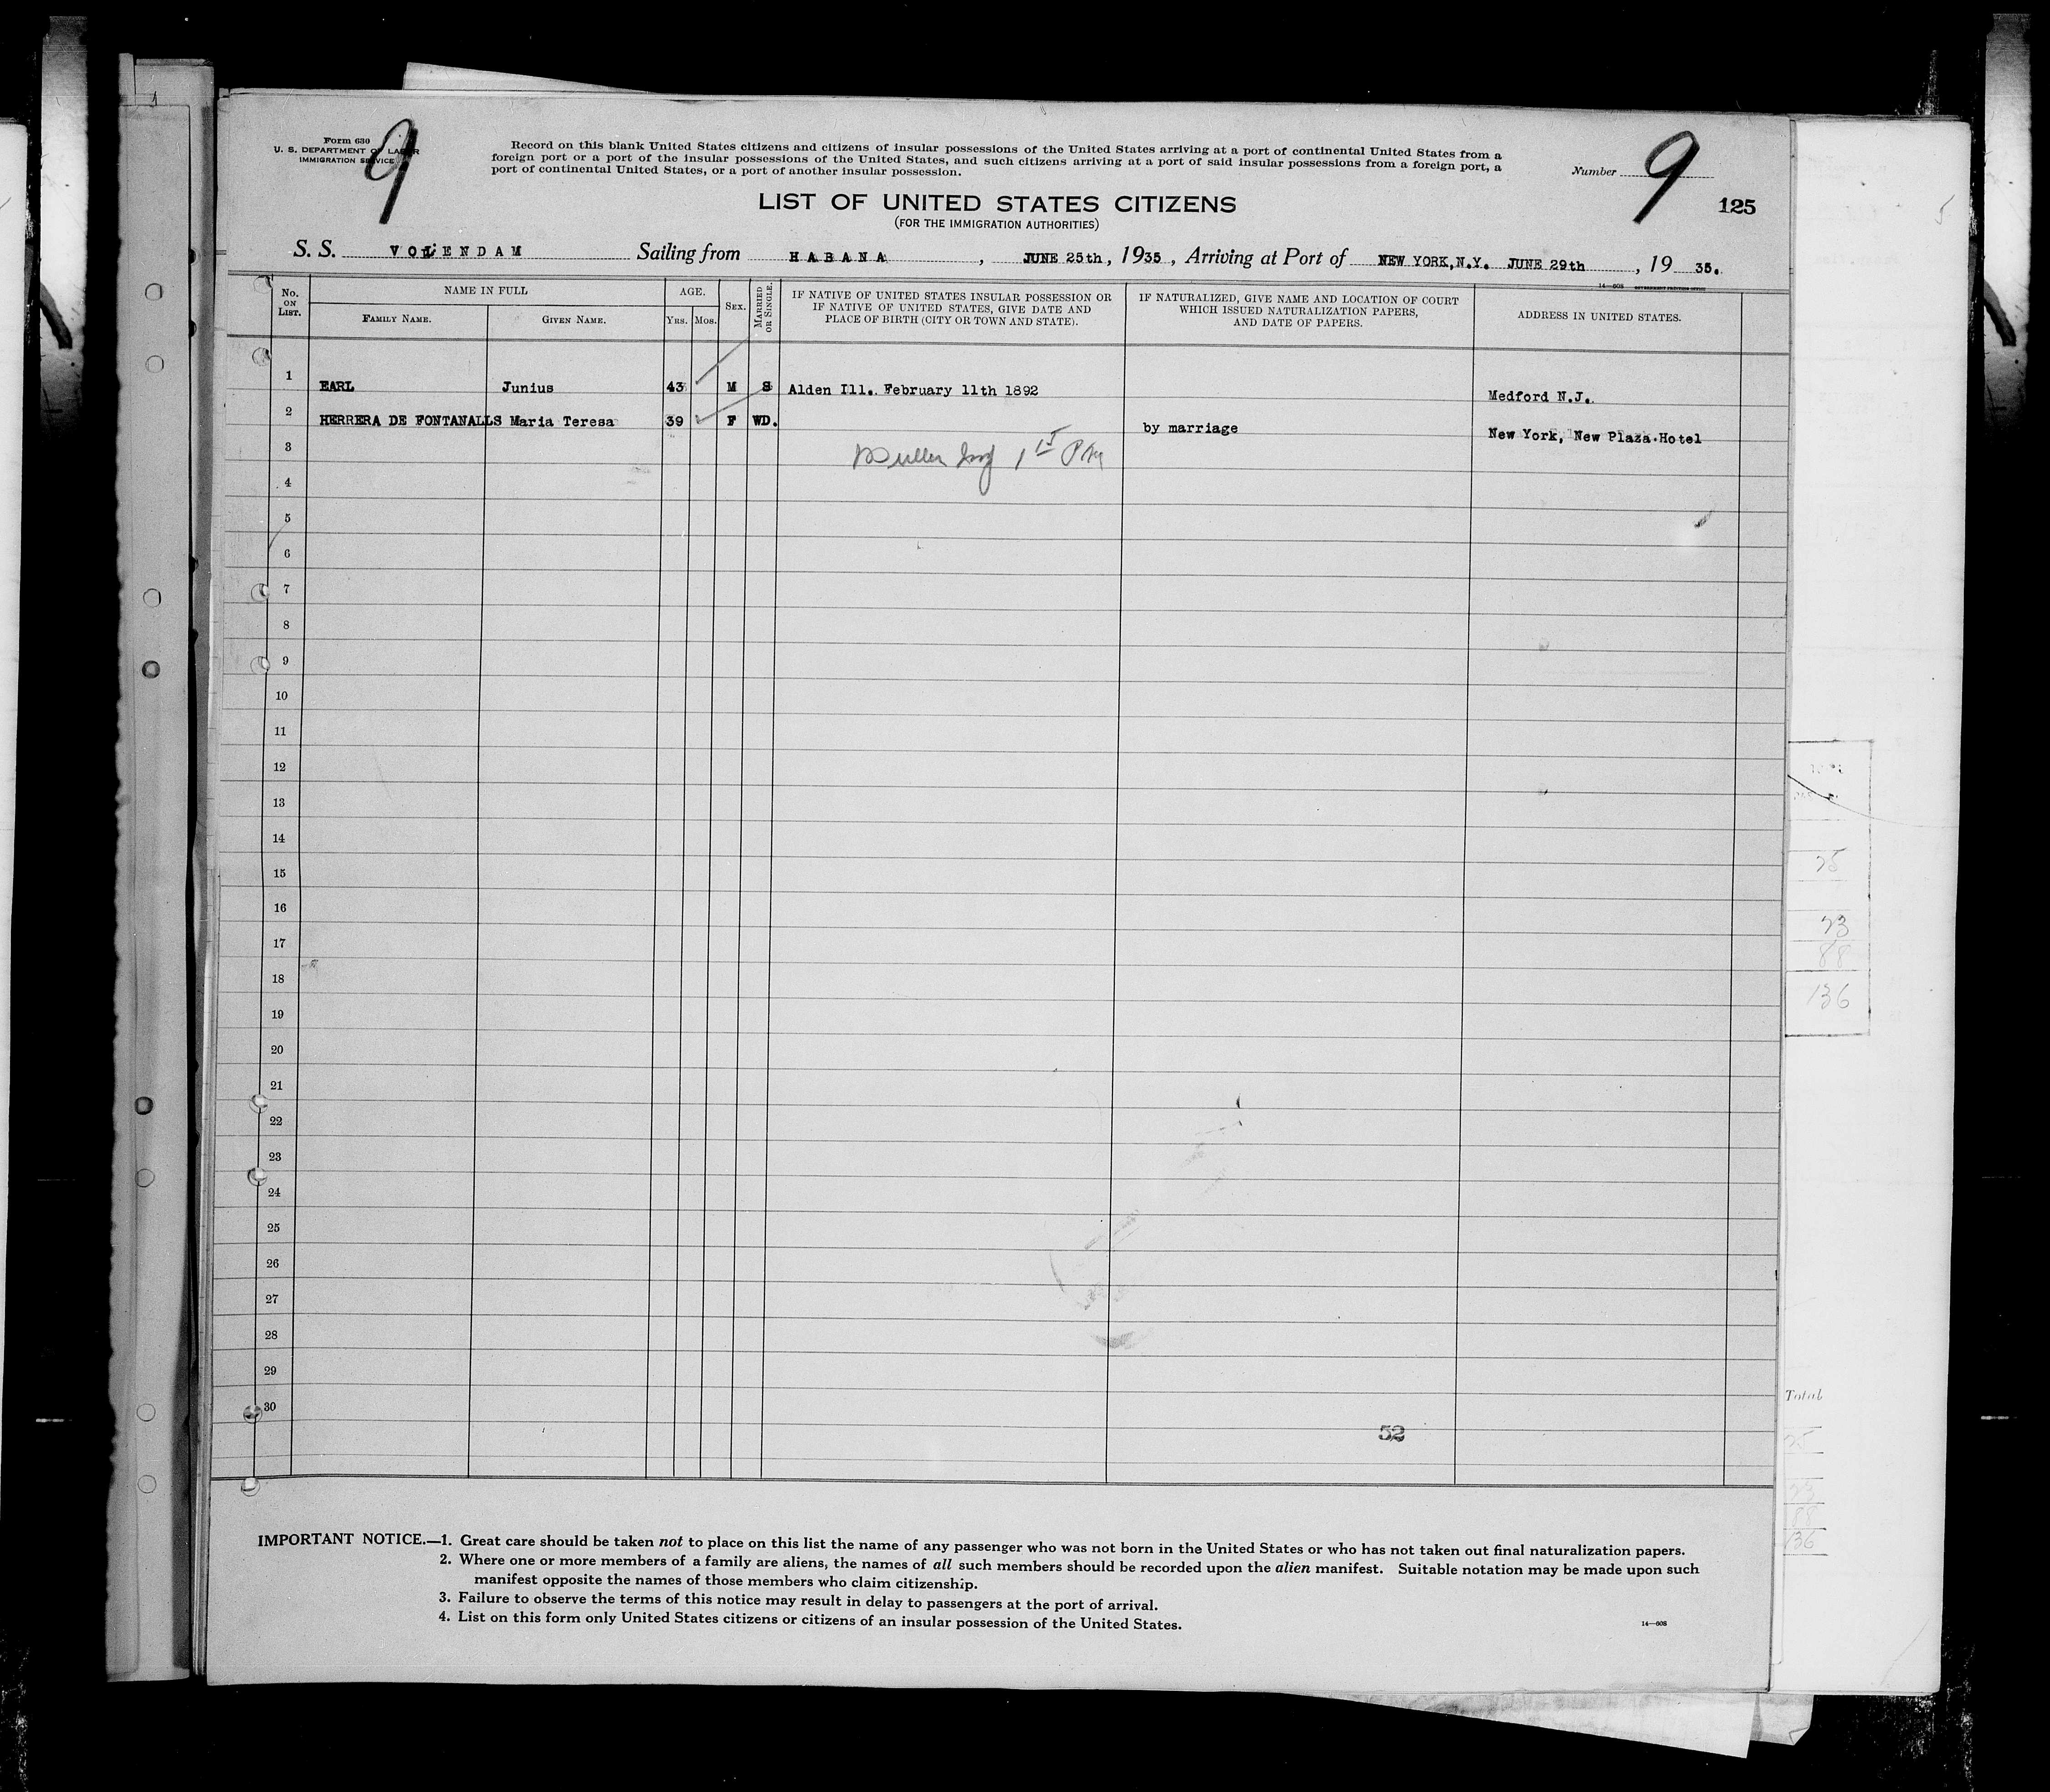 Form 630
U. S. DEPARTMENT OF LABOR
IMMIGRATION SERVICE
9
Record on this blank United States citizens and citizens of insular possessions of the United States arriving at a port of continental United States from a
foreign port or a port of the insular possessions of the United States, and such citizens arriving at a port of said insular possessions from a foreign port, a
port of continental United States, or a port of another insular possession.
Number 9
125
LIST OF UNITED STATES CITIZENS
(FOR THE IMMIGRATION AUTHORITIES)
S. S. VOLENDAM Sailing from HABANA, JUNE 25th, 1935, Arriving at Port of NEW YORK,N.Y. JUNE 29th, 19 35.
No. ON LIST. NAME IN FULL FAMILY NAME. GIVEN NAME. AGE. YRS. MOS. SEX. MARRIED OR SINGLE. IF NATIVE OF UNITED STATES INSULAR POSSESSION OR IF NATIVE OF UNITED STATES, GIVE DATE AND PLACE OF BIRTH (CITY OR TOWN AND STATE). IF NATURALIZED, GIVE NAME AND LOCATION OF COURT WHICH ISSUED NATURALIZATION PAPERS, AND DATE OF PAPERS. ADDRESS IN UNITED STATES.
1 EARL Junius 43 M S Alden Ill. February 11th 1892 Medford N.J.
2 HERRERA DE FONTANALLS Maria Teresa 39 F WD. by marriage New York, New Plaza Hotel
3
4
5
6
7
8
9
10
11
12
13
14
15
16
17
18
19
20
21
22
23
24
25
26
27
28
29
30
52
IMPORTANT NOTICE.—1. Great care should be taken not to place on this list the name of any passenger who was not born in the United States or who has not taken out final naturalization papers.
2. Where one or more members of a family are aliens, the names of all such members should be recorded upon the alien manifest. Suitable notation may be made upon such
manifest opposite the names of those members who claim citizenship.
3. Failure to observe the terms of this notice may result in delay to passengers at the port of arrival.
4. List on this form only United States citizens or citizens of an insular possession of the United States.
14—608
75
73
88
136
Total
136